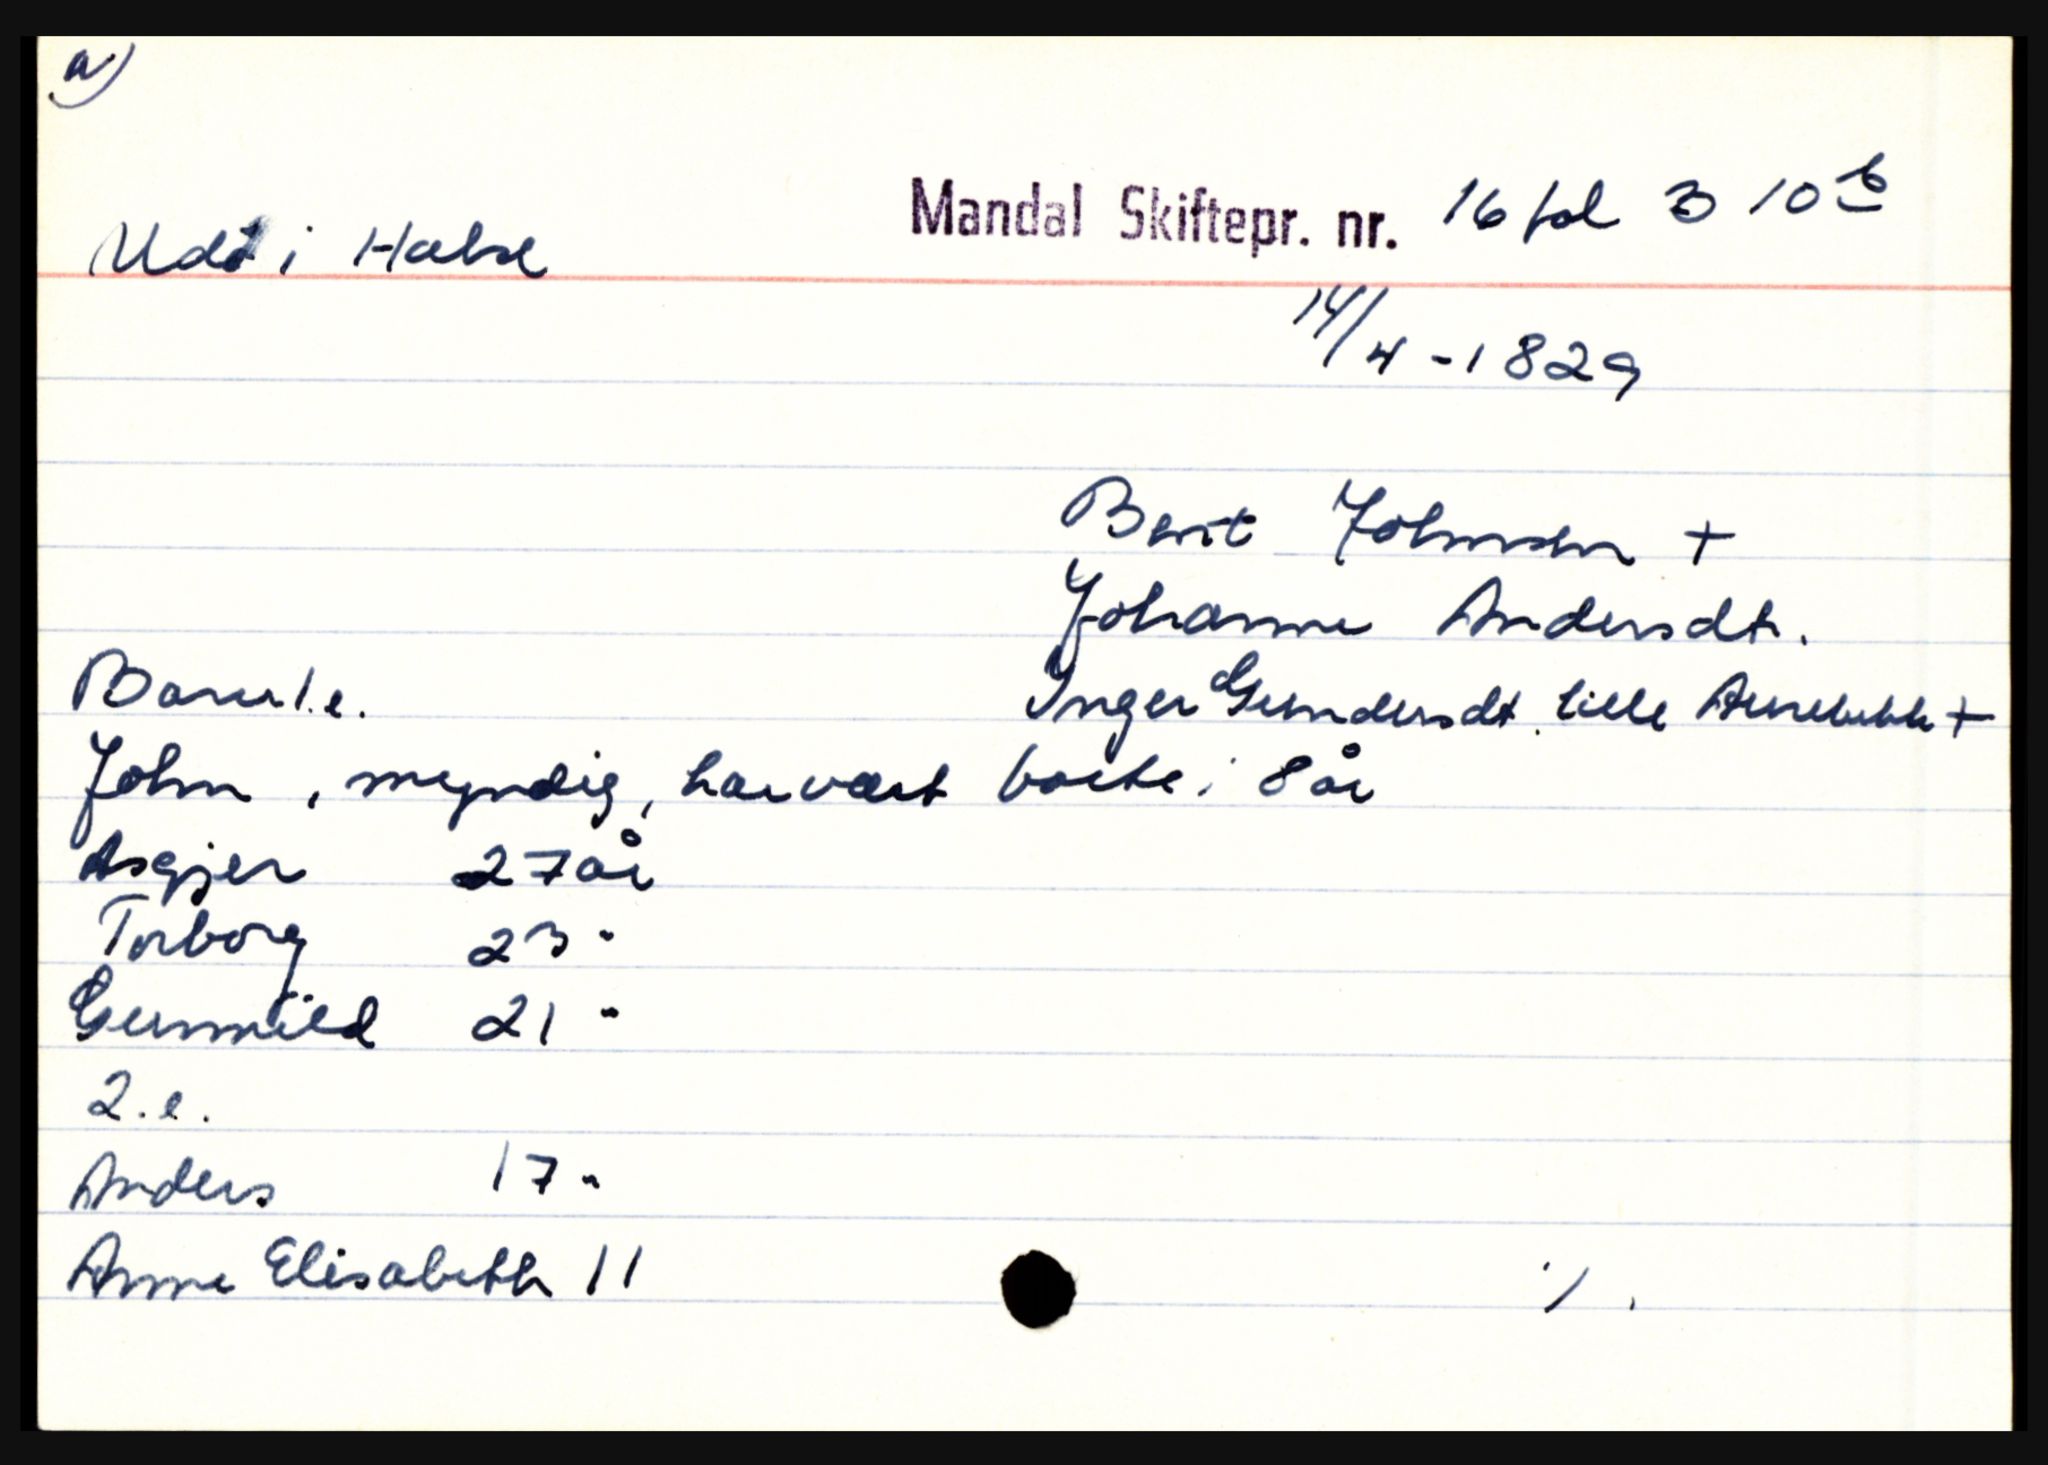 a)
Mandal Skiftepr. nr. 16 fol 310 b
Udø i Halse
14/4 - 1829
Berit Johnsen +
Johanne Andersdt.
Barn 1.e. Inger Gundersdt. lille +
John, myndig, har vært borte i 8 år
Asgjer 27 år
Torborg 23 "
Gunnild 21 "
2.e.
Anders 17 "
Anne Elisabeth 11
./.